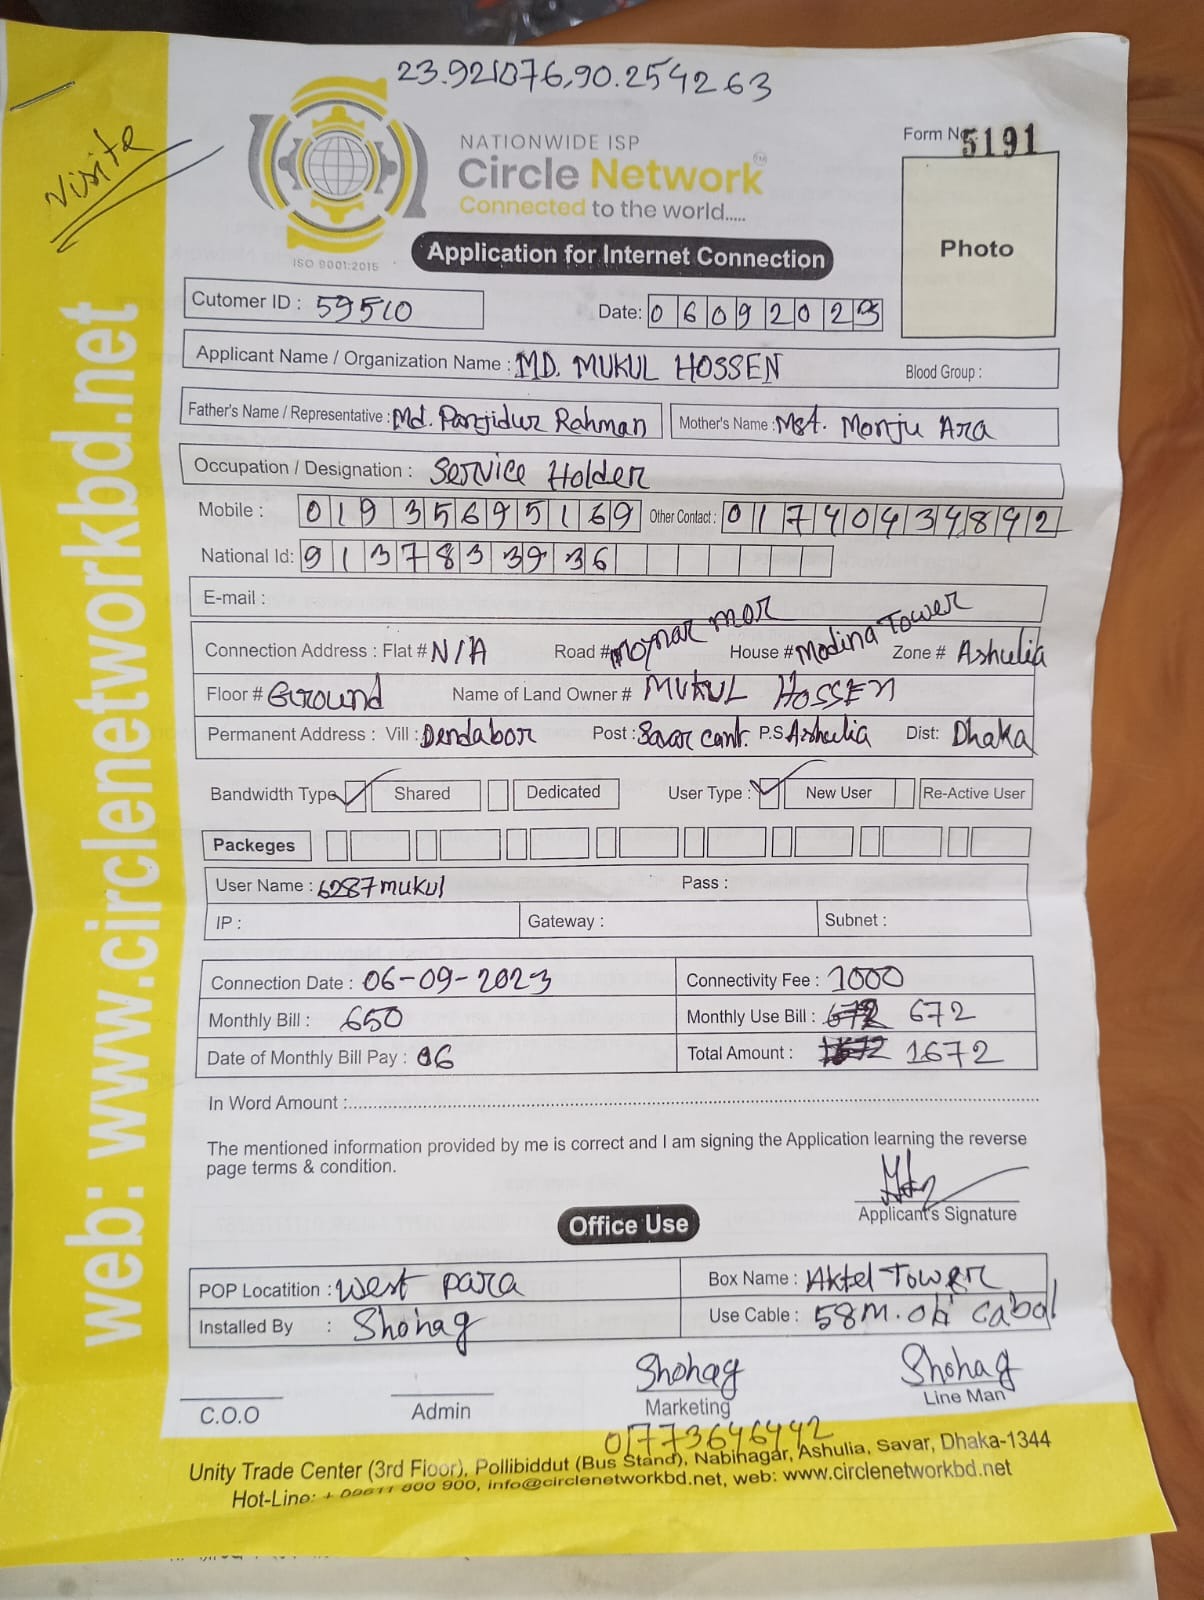 23.921076,90.254263
Visite
NATIONWIDE ISP
Circle Network™
Connected to the world.....
ISO 9001:2015
Form No. 5191
Photo
Application for Internet Connection
Cutomer ID : 59510
Date: 06092023
Applicant Name / Organization Name : MD. MUKUL HOSSEN Blood Group :
Father's Name / Representative : Md. Panjidur Rahman Mother's Name : Mst. Monju Ara
Occupation / Designation : Service Holder
Mobile : 01935695169 Other Contact : 01740434842
National Id: 9137833936
E-mail :
Connection Address : Flat # N/A Road # Moynar mor House # Modina Tower Zone # Ashulia
Floor # Ground Name of Land Owner # MUKUL HOSSEN
Permanent Address : Vill : Dendabor Post : Savar cant. P.S Ashulia Dist: Dhaka
Bandwidth Type Shared Dedicated User Type : New User Re-Active User
Packeges
User Name : 6287mukul Pass :
IP : Gateway : Subnet :
Connection Date : 06-09-2023 Connectivity Fee : 1000
Monthly Bill : 650 Monthly Use Bill : 672 672
Date of Monthly Bill Pay : 06 Total Amount : 1672 1672
In Word Amount :
The mentioned information provided by me is correct and I am signing the Application learning the reverse
page terms & condition.
Applicant's Signature
Office Use
POP Locatition : West para Box Name : Aktel Tower
Installed By : Shohag Use Cable : 58M. cabal
Shohag Shohag
C.O.O Admin Marketing Line Man
01773646442
Unity Trade Center (3rd Floor), Pollibiddut (Bus Stand), Nabinagar, Ashulia, Savar, Dhaka-1344
Hot-Line: + 09611 800 900, info@circlenetworkbd.net, web: www.circlenetworkbd.net
web: www.circlenetworkbd.net